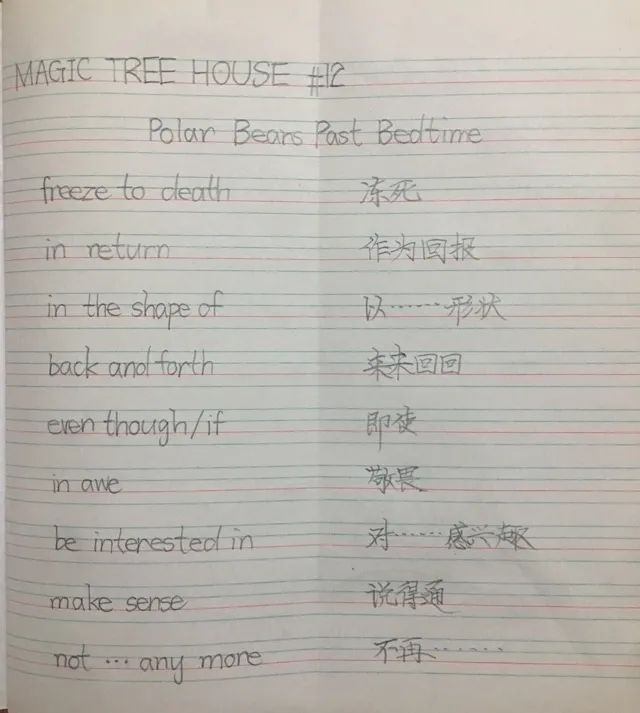 MAGIC TREE HOUSE #12
Polar Bears Past Bedtime
freeze to death 冻死
in return 作为回报
in the shape of 以……形状
back and forth 来来回回
even though/if 即使
in awe 敬畏
be interested in 对……感兴趣
make sense 说得通
not … any more 不再……